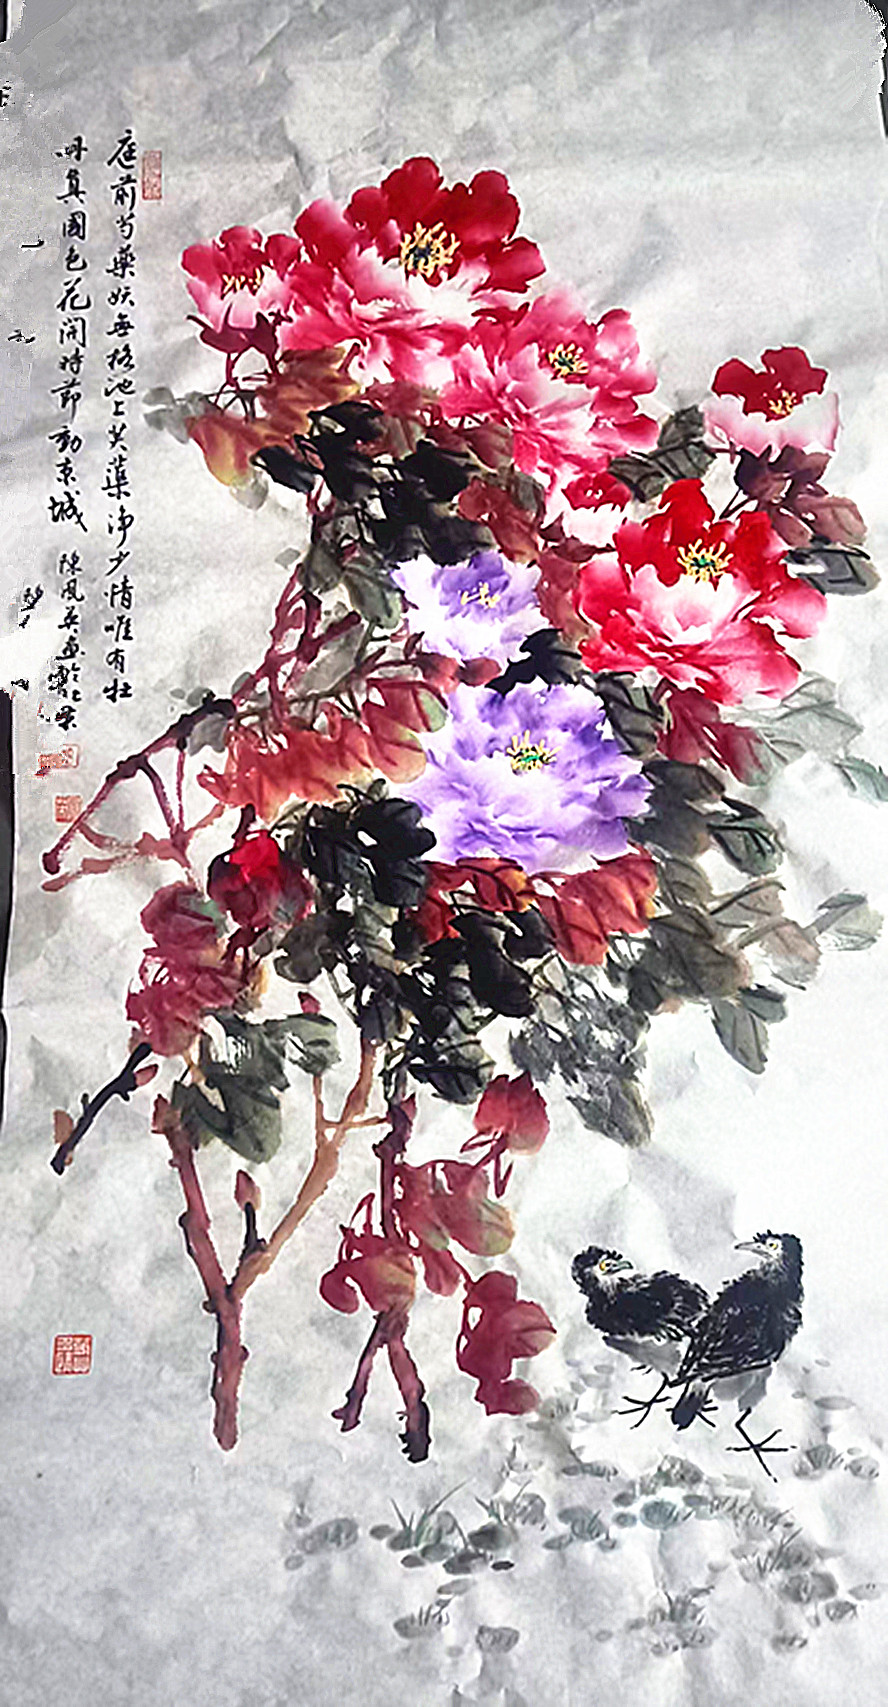 庭前芍藥妖無格池上芙蕖淨少情唯有牡
丹真國色花開時節動京城 陳風英畫於北京